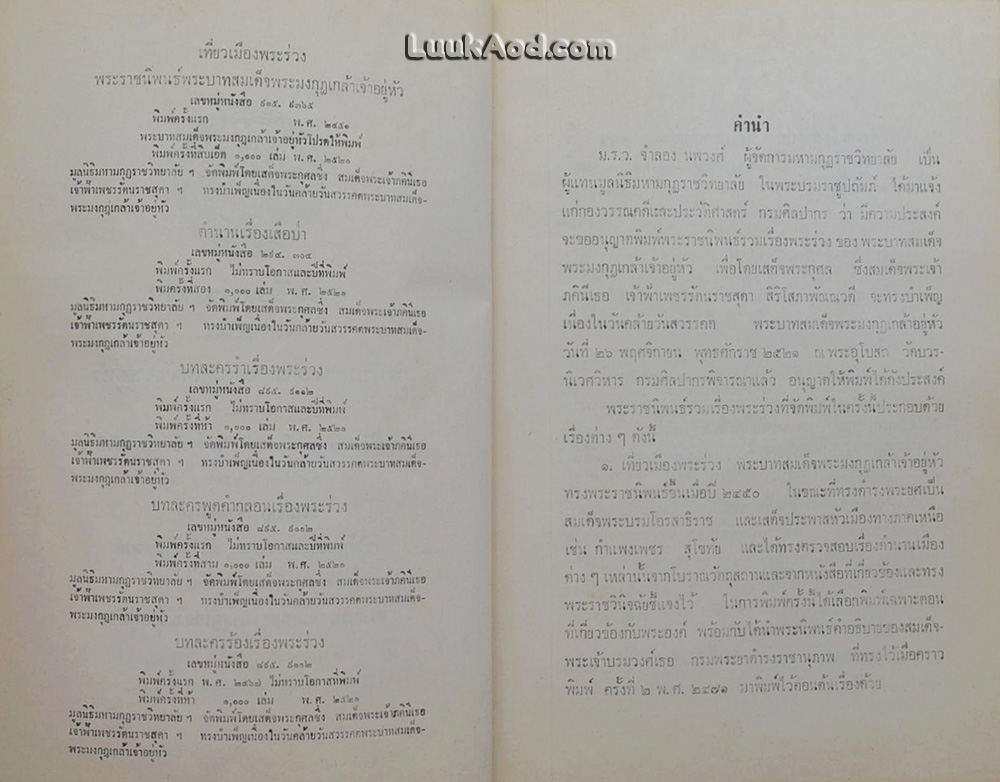 LuukAod.com
เที่ยวเมืองพระร่วง
พระราชนิพนธ์พระบาทสมเด็จพระมงกุฎเกล้าเจ้าอยู่หัว
เลขหมู่หนังสือ ๙๑๕. ๙๓๖๕
พิมพ์ครั้งแรก พ. ศ. ๒๔๕๑
พระบาทสมเด็จพระมงกุฎเกล้าเจ้าอยู่หัวโปรดให้พิมพ์
พิมพ์ครั้งที่สิบเอ็ด ๑,๐๐๐ เล่ม พ. ศ. ๒๕๒๑
มูลนิธิมหามกุฎราชวิทยาลัย ฯ จัดพิมพ์โดยเสด็จพระกุศลซึ่ง สมเด็จพระเจ้าภคินีเธอ
เจ้าฟ้าเพชรรัตนราชสุดา ฯ ทรงบำเพ็ญเนื่องในวันคล้ายวันสวรรคตพระบาทสมเด็จ-
พระมงกุฎเกล้าเจ้าอยู่หัว
ตำนานเรื่องเสือป่า
เลขหมู่หนังสือ ๒๙๔. ๓๐๕
พิมพ์ครั้งแรก ไม่ทราบโอกาสและปีที่พิมพ์
พิมพ์ครั้งที่สอง ๑,๐๐๐ เล่ม พ. ศ. ๒๕๒๑
มูลนิธิมหามกุฎราชวิทยาลัย ฯ จัดพิมพ์โดยเสด็จพระกุศลซึ่ง สมเด็จพระเจ้าภคินีเธอ
เจ้าฟ้าเพชรรัตนราชสุดา ฯ ทรงบำเพ็ญเนื่องในวันคล้ายวันสวรรคตพระบาทสมเด็จ-
พระมงกุฎเกล้าเจ้าอยู่หัว
บทละครรำเรื่องพระร่วง
เลขหมู่หนังสือ ๘๙๕. ๙๑๑๒
พิมพ์ครั้งแรก ไม่ทราบโอกาสและปีที่พิมพ์
พิมพ์ครั้งที่ห้า ๑,๐๐๑ เล่ม พ. ศ. ๒๕๒๑
มูลนิธิมหามกุฎราชวิทยาลัย ฯ จัดพิมพ์โดยเสด็จพระกุศลซึ่ง สมเด็จพระเจ้าภคินีเธอ
เจ้าฟ้าเพชรรัตนราชสุดา ฯ ทรงบำเพ็ญเนื่องในวันคล้ายวันสวรรคตพระบาทสมเด็จ-
พระมงกุฎเกล้าเจ้าอยู่หัว
บทละครพูดคำกลอนเรื่องพระร่วง
เลขหมู่หนังสือ ๘๙๕. ๙๑๑๒
พิมพ์ครั้งแรก ไม่ทราบโอกาสและปีที่พิมพ์
พิมพ์ครั้งที่สาม ๑,๐๐๐ เล่ม พ. ศ. ๒๕๒๑
มูลนิธิมหามกุฎราชวิทยาลัย ฯ จัดพิมพ์โดยเสด็จพระกุศลซึ่ง สมเด็จพระเจ้าภคินีเธอ
เจ้าฟ้าเพชรรัตนราชสุดา ฯ ทรงบำเพ็ญเนื่องในวันคล้ายวันสวรรคตพระบาทสมเด็จ-
พระมงกุฎเกล้าเจ้าอยู่หัว
บทละครร้องเรื่องพระร่วง
เลขหมู่หนังสือ ๘๙๕. ๙๑๑๒
พิมพ์ครั้งแรก พ. ศ. ๒๔๖๗ ไม่ทราบโอกาสที่พิมพ์
พิมพ์ครั้งที่ห้า ๑,๐๐๐ เล่ม พ. ศ. ๒๕๒๑
มูลนิธิมหามกุฎราชวิทยาลัย ฯ จัดพิมพ์โดยเสด็จพระกุศลซึ่ง สมเด็จพระเจ้าภคินีเธอ
เจ้าฟ้าเพชรรัตนราชสุดา ฯ ทรงบำเพ็ญเนื่องในวันคล้ายวันสวรรคตพระบาทสมเด็จ-
พระมงกุฎเกล้าเจ้าอยู่หัว
คำนำ
ม.ร.ว. จำลอง นพวงศ์ ผู้จัดการมหามกุฎราชวิทยาลัย เป็น
ผู้แทนมูลนิธิมหามกุฎราชวิทยาลัย ในพระบรมราชูปถัมภ์ ได้มาแจ้ง
แก่กองวรรณคดีและประวัติศาสตร์ กรมศิลปากร ว่า มีความประสงค์
จะขออนุญาตพิมพ์พระราชนิพนธ์รวมเรื่องพระร่วง ของ พระบาทสมเด็จ
พระมงกุฎเกล้าเจ้าอยู่หัว เพื่อโดยเสด็จพระกุศล ซึ่งสมเด็จพระเจ้า
ภคินีเธอ เจ้าฟ้าเพชรรัตนราชสุดา สิริโสภาพัณณวดี จะทรงบำเพ็ญ
เนื่องในวันคล้ายวันสวรรคต พระบาทสมเด็จพระมงกุฎเกล้าเจ้าอยู่หัว
วันที่ ๒๖ พฤศจิกายน พุทธศักราช ๒๕๒๑ ณ พระอุโบสถ วัดบวร-
นิเวศวิหาร กรมศิลปากรพิจารณาแล้ว อนุญาตให้พิมพ์ได้ดังประสงค์
พระราชนิพนธ์รวมเรื่องพระร่วงที่จัดพิมพ์ในครั้งนี้ประกอบด้วย
เรื่องต่าง ๆ ดังนี้
๑. เที่ยวเมืองพระร่วง พระบาทสมเด็จพระมงกุฎเกล้าเจ้าอยู่หัว
ทรงพระราชนิพนธ์ขึ้นเมื่อปี ๒๔๕๐ ในขณะที่ทรงดำรงพระยศเป็น
สมเด็จพระบรมโอรสาธิราช และเสด็จประพาสหัวเมืองทางภาคเหนือ
เช่น กำแพงเพชร สุโขทัย และได้ทรงตรวจสอบเรื่องตำนานเมือง
ต่าง ๆ เหล่านั้นจากโบราณวัตถุสถานและจากหนังสือที่เกี่ยวข้องและทรง
พระราชวินิจฉัยชี้แจงไว้ ในการพิมพ์ครั้งนี้ได้เลือกพิมพ์เฉพาะตอน
ที่เกี่ยวข้องกับพระองค์ พร้อมกับได้นำพระนิพนธ์คำอธิบายของสมเด็จ-
พระเจ้าบรมวงศ์เธอ กรมพระยาดำรงราชานุภาพ ที่ทรงไว้เมื่อคราว
พิมพ์ ครั้งที่ ๒ พ. ศ. ๒๔๗๑ มาพิมพ์ไว้ตอนต้นเรื่องด้วย